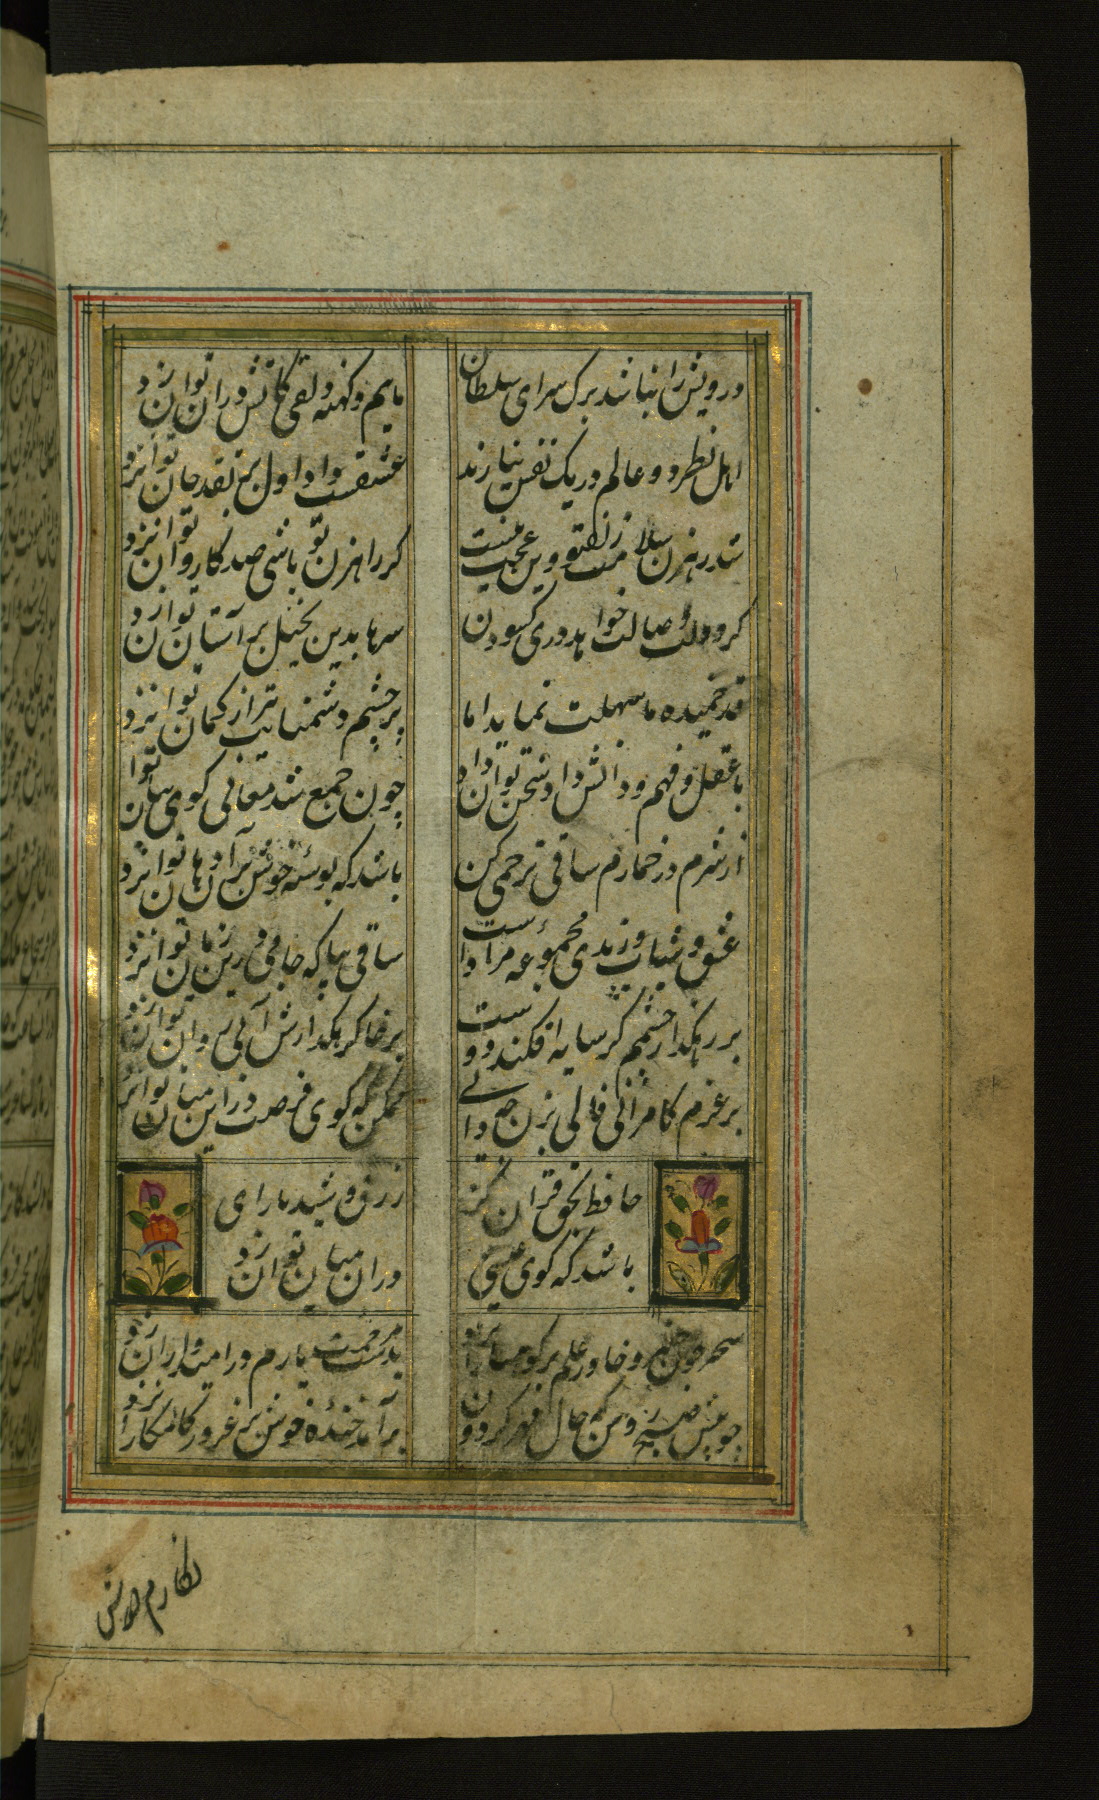 درویش را نباشد برک سرای سلطان
ماییم و کهنه دلقی کاتش دران توان زد
اهل نظر دو عالم در یک نفس ببازند
عشقست و داو اول بر نقد جان توان زد
شد رهزن سلامت زلف تو وین عجب نیست
کر راهزن تو باشی صد کاروان توان زد
کر دولت وصالت خواهد دری کشودن
سرها بدین تخیل بر آستان توان زد
قد خمیده ما سهلت نماید اما
بر چشم دشمنان تیر از کمان توان زد
با عقل و فهم و دانش داد سخن توان داد
چون جمع شد معانی کوی بیان توان
از شرم در خمارم ساقی ترحمی کن
باشد که بوسه خوش بر آن دهان توان زد
عشق و شباب و رندی مجموعه مرادست
ساقی بیا که جامی در این زمان توان زد
بر رهکذار چشمم کر سایه افکند دوست
بر خاک رهکذارش آب روان توان زد
بر عزم کامرانی فالی بزن چه دانی
ممکن که کوی فرصت در این میان توان زد
حافظ بحق قران کز
زرق و شید بازای
باشد که کوی عیشی
دران میان توان زد
سحر چون خسرو خاور علم بر کوهساران زد
بدست مرحمت یارم در امیدواران زد
چو پیش صبح روشن که حال مهر کردون
برآمد خنده خوش بر غرور کامکاران زد
نکارم دوش